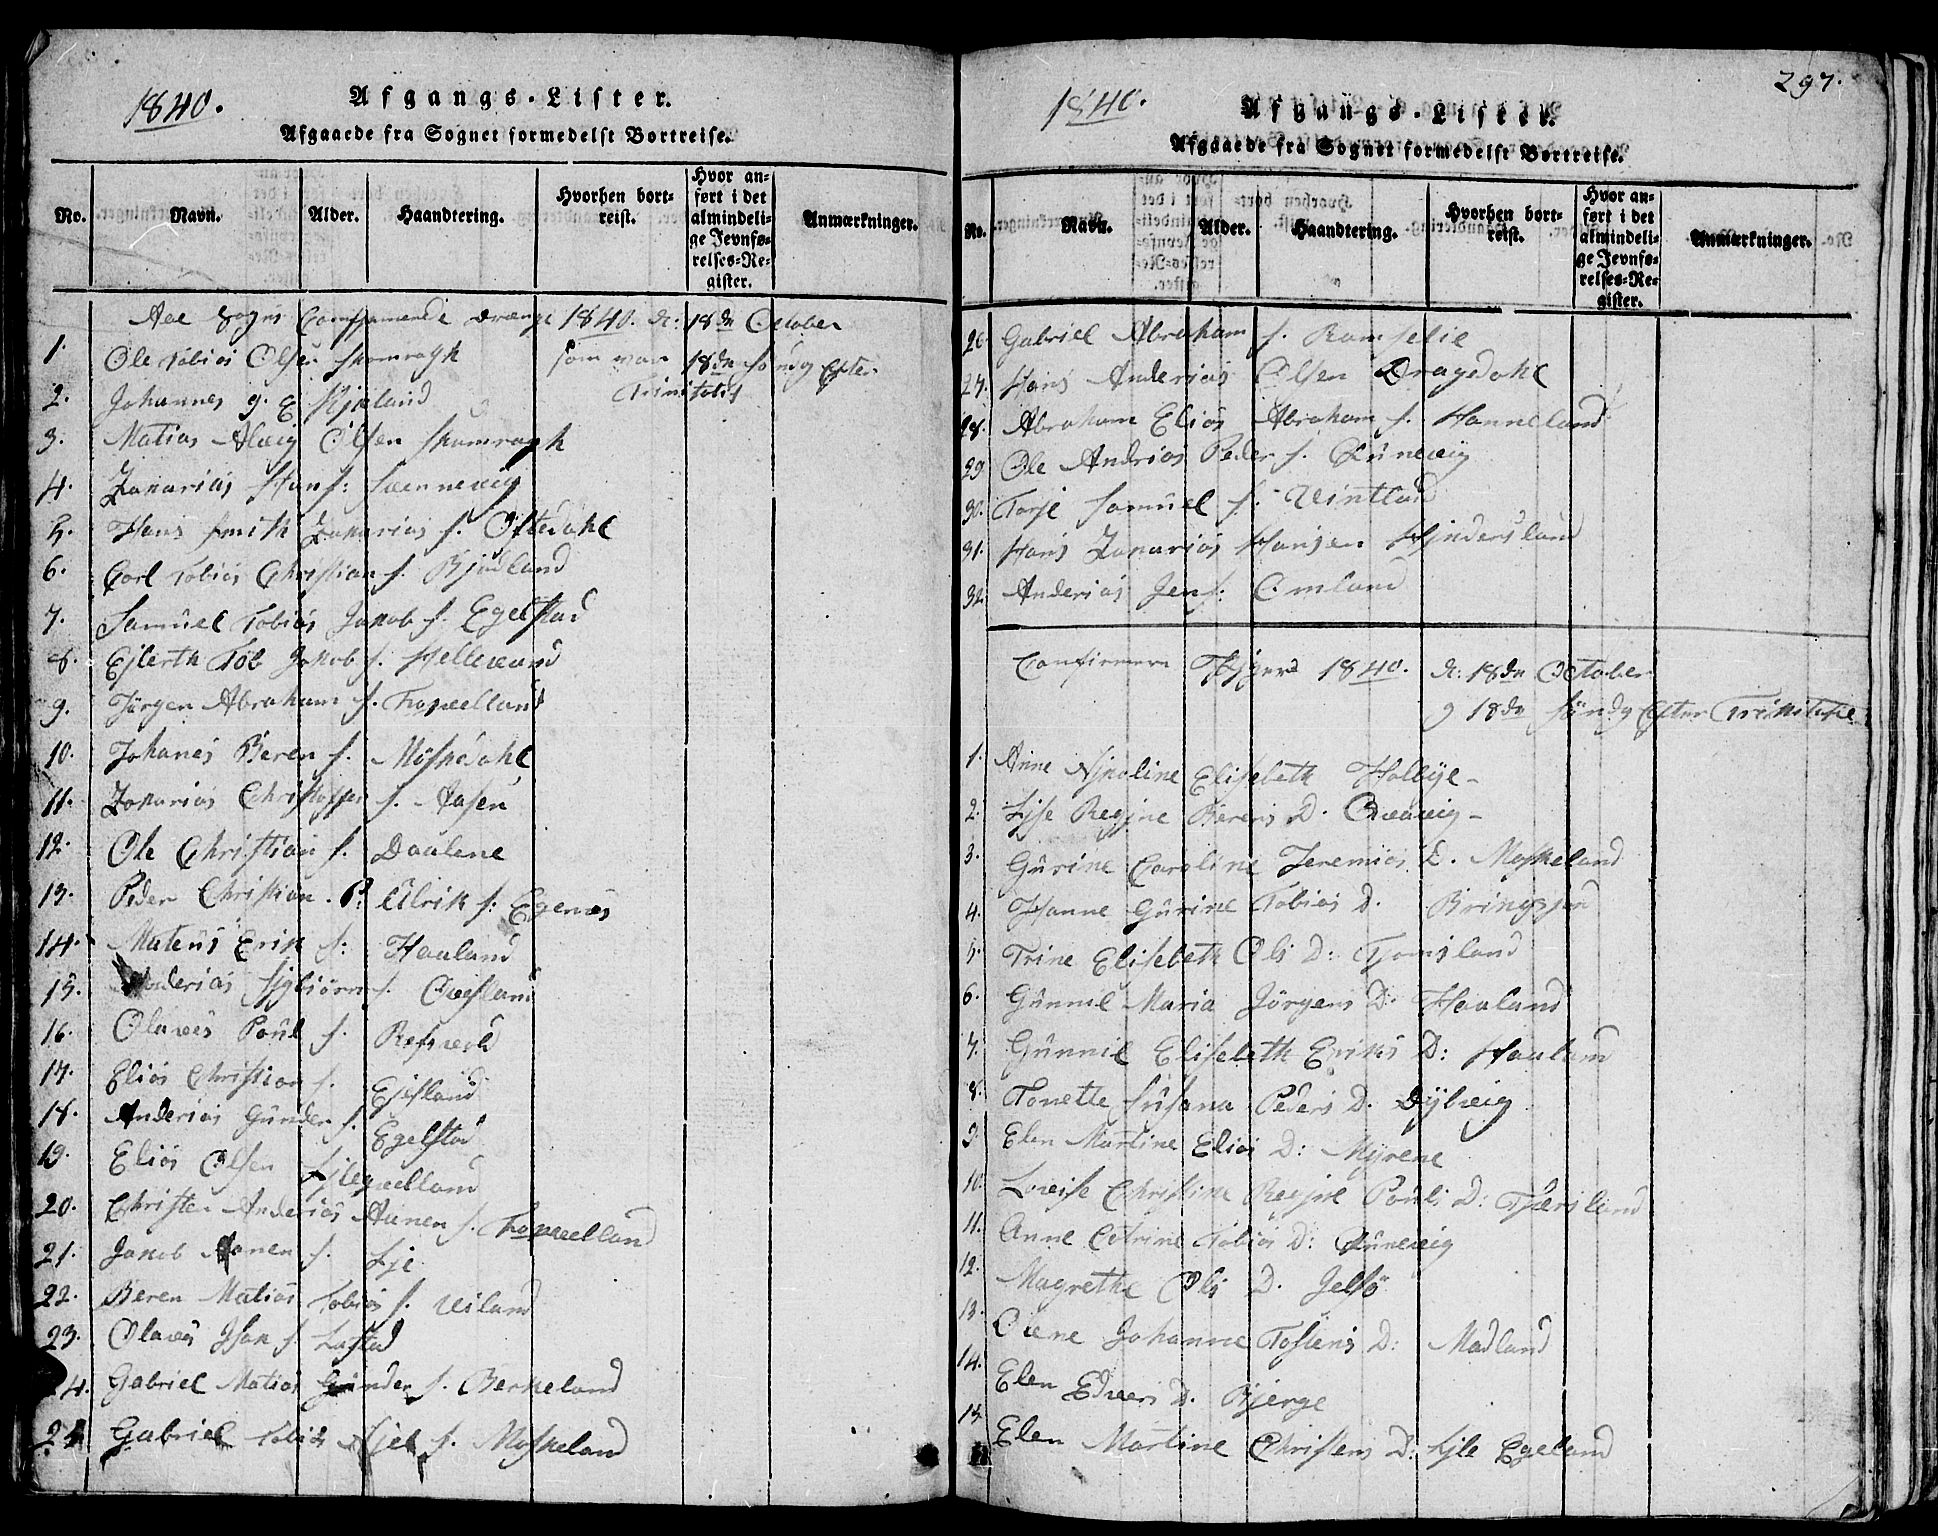 1840.
Afgangs-Lister.
Afgaaede fra Sognet formedelst Bortreise.
No. Navn. Alder. Haandtering. Hvorhen bortreist. Hvor anført i det almindelige Jevnførelses-Register. Anmærkninger.
Aae Sogns Confirmerede Drænge 1840. d: 18de October
1. Ole Tobias Olsen Skomragk som var 18de Søndg Efter
Trinitatis
2. Johannes g. E Kjeland
3. Matias Alaeg Olsen Skomragk
4. Zakarias Hans: Svennevig
5. Hans Smith Zakarias s. Oftedahl
6. Carl Tobias Christian s. Bjudland
7. Samuel Tobias Jakob s. Egelstad
8. Ejlerth Tob Jakob s. Hellevand
9. Jörgen Abraham s. Trapvelland
10. Johanes Beren s. Möskedahl
11. Zakarias Christoffer s. Aasen
12. Ole Christian s. Daalene
13. Peder Christian. P: Ulrik s: Egenes
14. Mateus Erik s: Haaland
15. Anderias Sigbiörn s. Ovesland
16. Olaves Poul s. Refsvold
17. Elias Christian s. Ejesland
18. Anderias Gunder s. Egelstad
19. Elias Olsen Ljlepvelland
20. Christen Anderias Aanen s. Trapvelland
21. Jakob Aanen s. Lie
22. Beren Matias Tobias s. Viland
23. Olaves Isak s. Lastad
24. Gabriel Matias Gunder s. Berkeland
25 Gabriel Tobias Njel s. Moskeland
297.
1840.
Afgangs-Lister.
Afgaaede fra Sognet formedelst Bortreise.
No. Navn. Alder. Haandtering. Hvorhen bortreist. Hvor anført i det almindelige Jevnførelses-Register. Anmærkninger.
26. Gabriel Abraham s. Ramselie
27. Hans Anderias Olsen Dragedahl
28. Abraham Elias Abraham s. Hanneland
29 Ole Andrias Peder s. Lunevig
30. Torje Samuel s. Vintlad
31. Hans Zakarias Hansen Hjndersland
32. Anderias Jens: Omland
Confirmern Pjgers 1840. d: 18de October
g 18de Söndg Efter Trinitatie
1. Anne Njkoline Elisebeth Holbye-
2. Ljse Regjne Berens D. Övævig-
3. Gurine Caroline Jeremias D. Moskeland
4. Hanne Gurine Tobias D. Bringsjon
5. Trine Elisebeth Ols D: Tjomsland
6. Gunnil Maria Jörgens D: Haaland
7. Gunnil Elisebeth Eriks D: Haaland
8. Tonette Susana Peders D. Dybvig
9. Elen Martine Elias D: Myrene
10. Lovise Christine Regine Pouls D: Tjærsland
11. Anne Catrine Tobias D: Lunevig
12. Magrethe Ols D. Jelsö
13. Olene Johanne Tostens D: Madland
14. Elen Edvers D. Bjerge
15 Elen Martine Christens D: Lyle Egeland